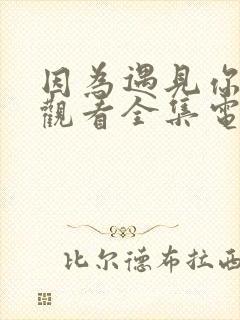 因為遇見你
觀看全集電
比尔德布拉西